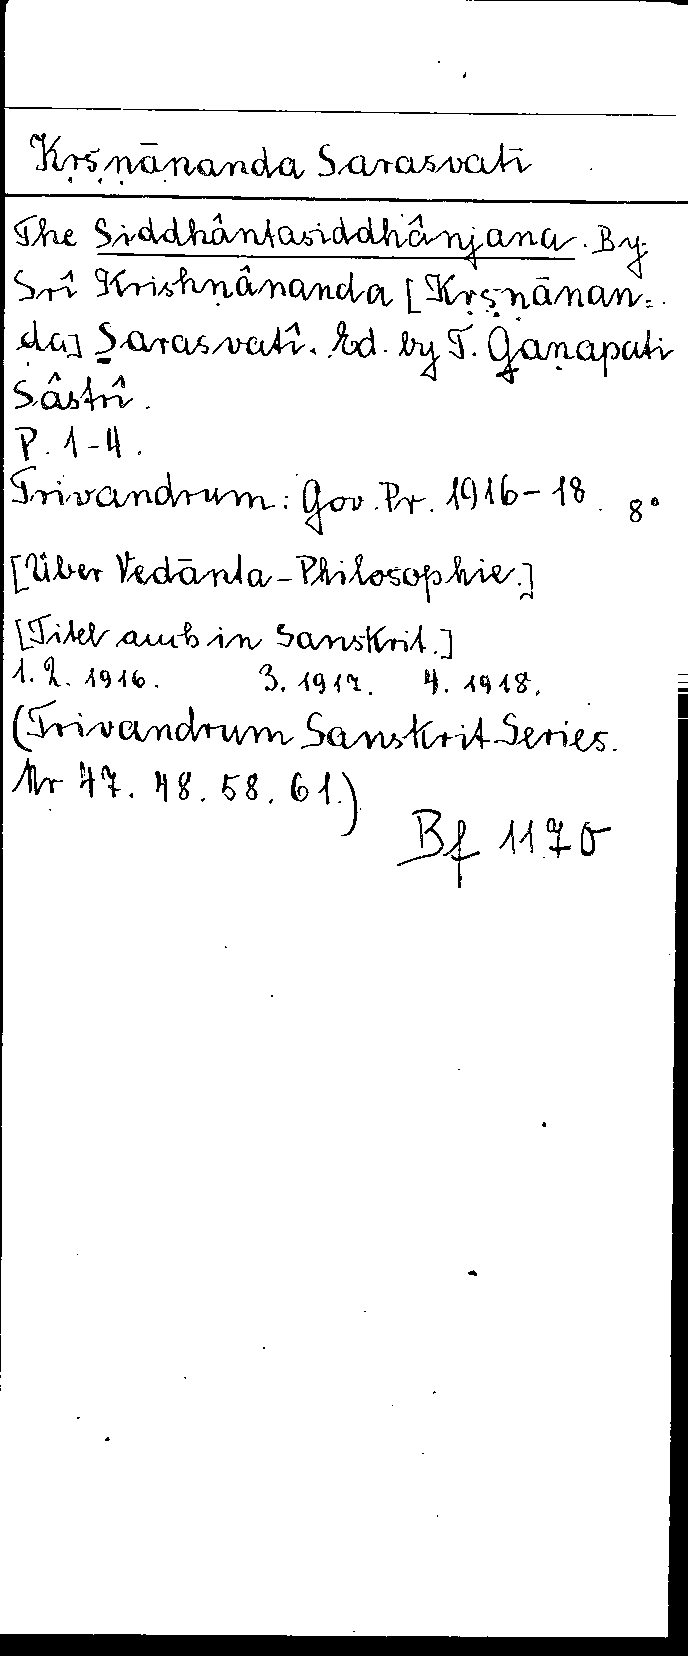 Kṛṣṇānanda Sarasvatī
The Siddhântasiddhânjana. By
Srî Krishṇânanda [Kṛṣṇānan=
da] Sarasvatî. Ed. by T. Gaṇapati
Sâstrî.
P. 1-4.
Trivandrum: Gov. Pr. 1916-18. 8°
[Über Vedānta-Philosophie.]
[Titel auch in Sanskrit.]
1. 2. 1916. 3. 1917. 4. 1918.
(Trivandrum Sanskrit Series.
Nr 47. 48. 58. 61.)
Bf 1170